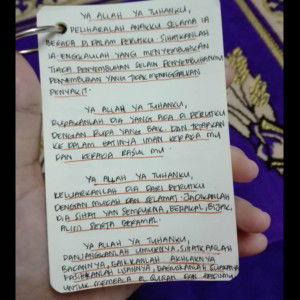 YA ALLAH YA TUHANKU,
PELIHARALAH ANAKKU SELAMA IA
BERADA DIDALAM PERUTKU. SIHATKANLAH
IA. ENGKAULAH YANG MENYEMBUHKAN
TIADA PENYEMBUHAN SELAIN PENYEMBUHANMU
PENYEMBUHAN YANG TIDAK MENINGGALKAN
PENYAKIT.
YA ALLAH YA TUHANKU,
RUPAKANLAH DIA YANG ADA DI PERUTKU
DENGAN RUPA YANG BAIK. DAN TETAPKAN
KE DALAM HATINYA IMAN KEPADA MU
DAN KEPADA RASUL MU.
YA ALLAH YA TUHANKU,
KELUARKANLAH DIA DARI PERUTKU
DENGAN MUDAH DAN SELAMAT. JADIKANLAH
DIA SIHAT YAN SEMPURNA, BERAKAL, BIJAK,
ALIM SERTA BERAMAL.
YA ALLAH YA TUHANKU,
PANJANGKANLAH UMURNYA, SIHATKANLAH
BADANNYA, BAIKKANLAH AKHLAKNYA
FASIHKANLAH LISANNYA,
UNTUK MEMBACA AL QURAN DAN